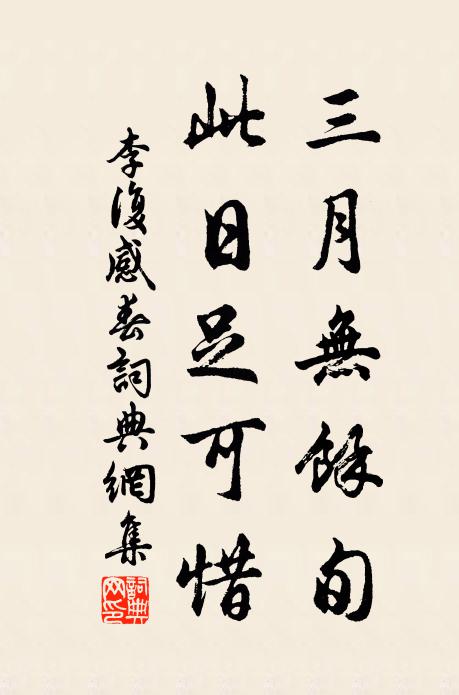 三月無餘旬
此日足可惜
李復感春詞典網集
詞典网印